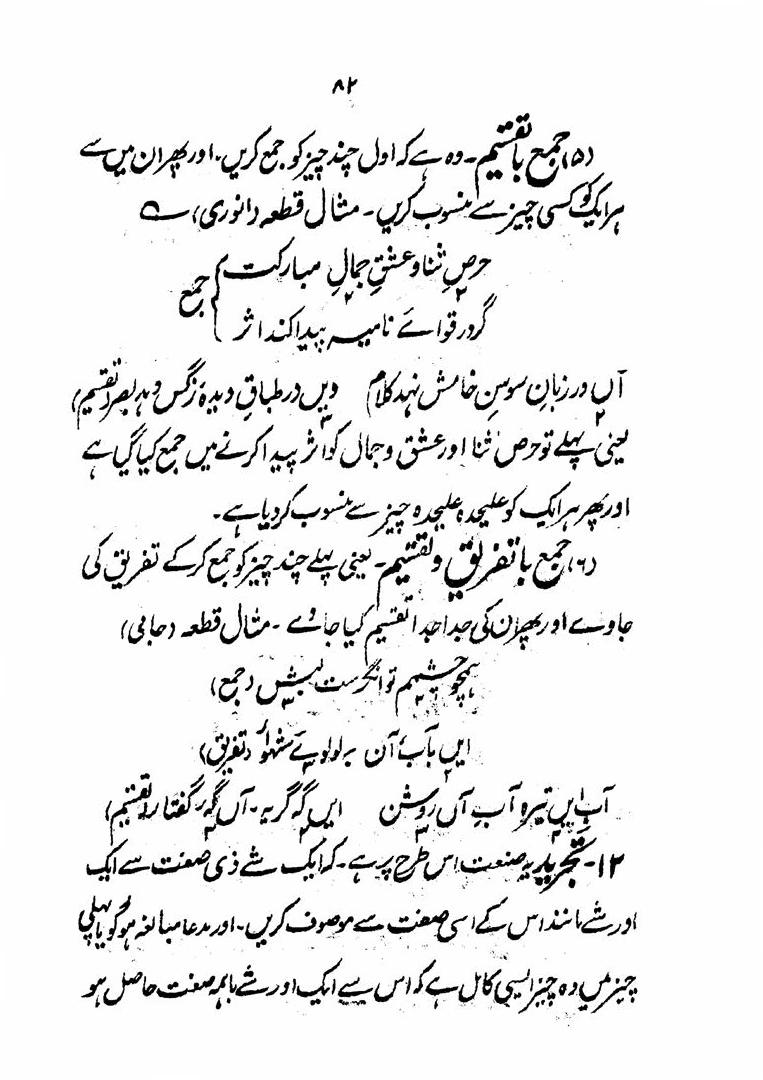 ۸۲
(۵) جمع باتقسیم۔ وہ ہے کہ اول چند چیز کو جمع کریں۔ اور پھر ان میں سے
ہر ایک کو کسی چیز سے منسوب کریں۔ مثال قطعہ (انوری)
حرصِ ثنا و عشقِ جمالِ مبارکت
جمع
گر در قوائے نامیہ پیدا کند اثر
آں در زبانِ سوسنِ خامش نہد کلام دیں در طباقِ دیدۂ نرگس دہد بصر (تقسیم)
یعنی پہلے تو حرص ثنا اور عشق و جمال کو اثر پیدا کرنے میں جمع کیا گیا ہے
اور پھر ہر ایک کو علیحدہ علیحدہ چیز سے منسوب کر دیا ہے۔
(۶) جمع باتفریق و تقسیم۔ یعنی پہلے چند چیز کو جمع کر کے تفریق کی
جاوے اور پھر ان کی جدا جدا تقسیم کیا جاوے۔ مثال قطعہ (جامی)
ہمچو چشمم توانگرست لبش (جمع)
ایں بآب آن بہ لولوے شہوار (تفریق)
آبِ ایں تیرہ آبِ آں روشن ایں گہِ گریہ۔ آں گہِ گفتار (تقسیم)
۱۲۔ تجرید یہ صنعت اس طرح پر ہے۔ کہ ایک شے ذی صفت سے ایک
اور شے مانند اس کے اسی صفت سے موصوف کریں۔ اور مدعا مبالغہ ہو گویا پہلی
چیز میں وہ چیز ایسی کامل ہے کہ اس سے ایک اور شے باہمہ صفت حاصل ہو